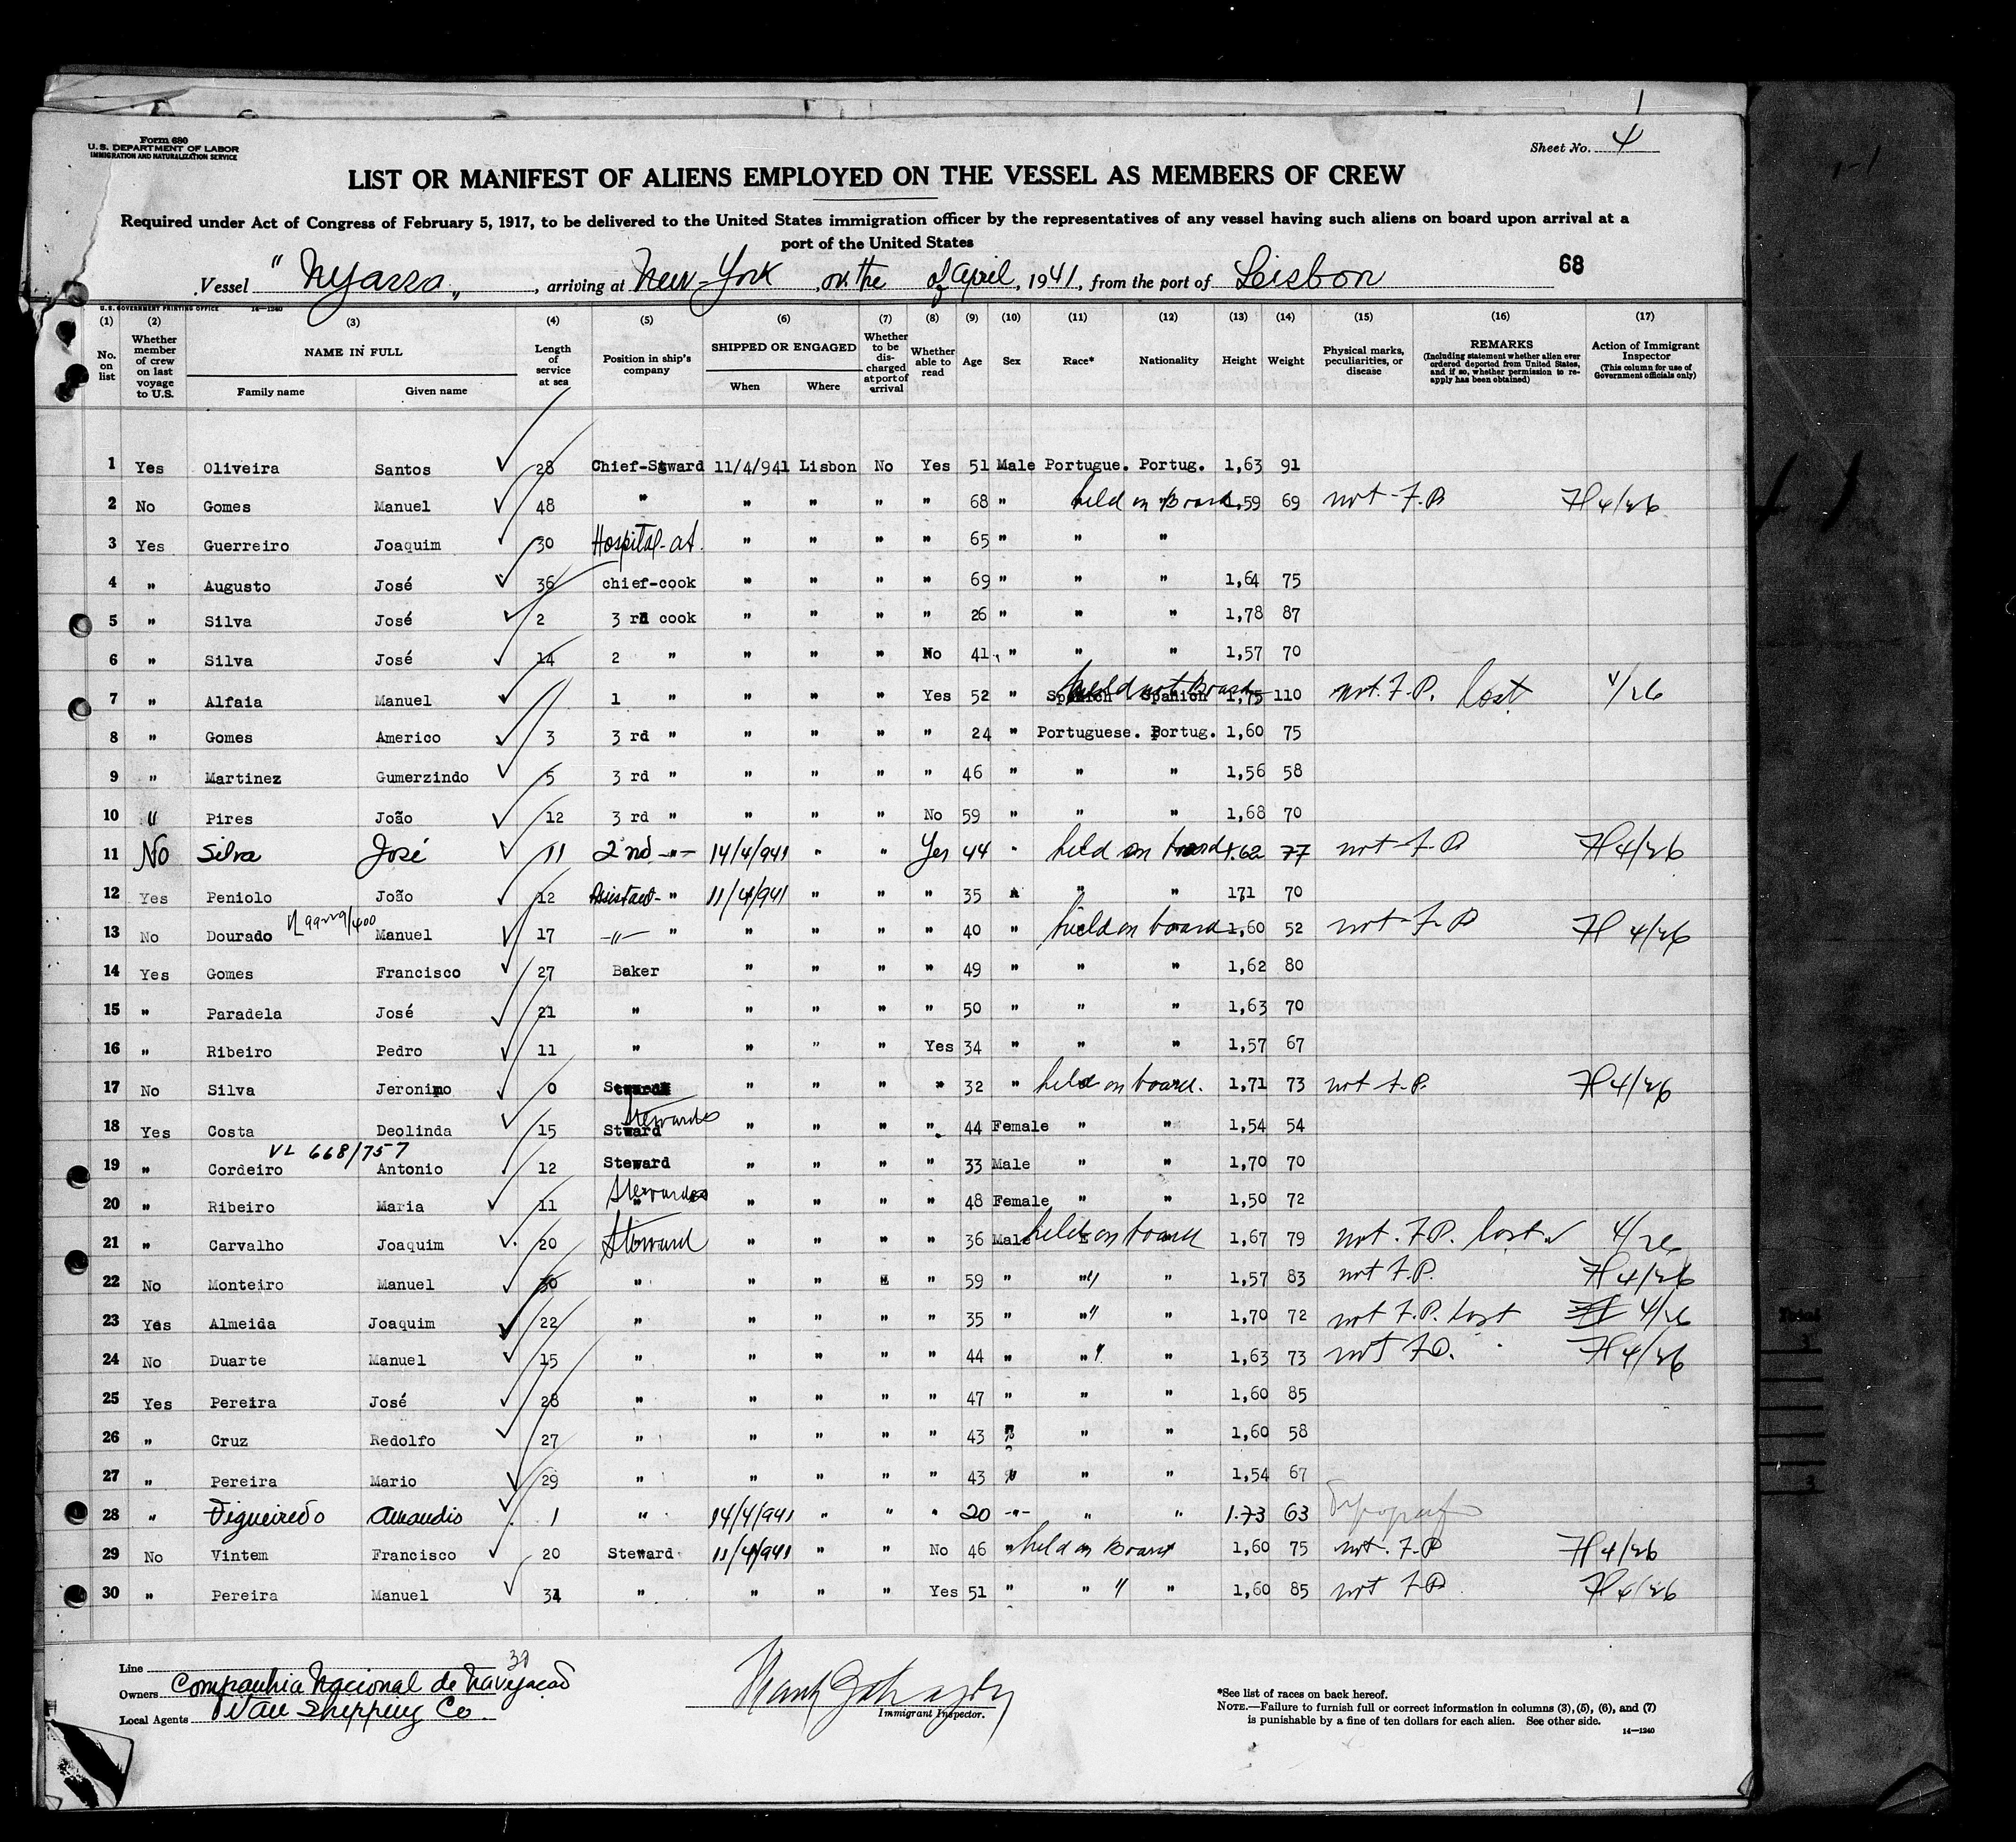 1
Form 680
U. S. DEPARTMENT OF LABOR
IMMIGRATION AND NATURALIZATION SERVICE
Sheet No. 4
LIST OR MANIFEST OF ALIENS EMPLOYED ON THE VESSEL AS MEMBERS OF CREW
Required under Act of Congress of February 5, 1917, to be delivered to the United States immigration officer by the representatives of any vessel having such aliens on board upon arrival at a
port of the United States
68
Vessel "Nyassa", arriving at New-York, on the of April, 1941, from the port of Lisbon
U. S. GOVERNMENT PRINTING OFFICE 14—1240
(1) (2) (3) (4) (5) (6) (7) (8) (9) (10) (11) (12) (13) (14) (15) (16) (17)
No. on list
Whether member of crew on last voyage to U.S.
NAME IN FULL
Family name Given name
Length of service at sea
Position in ship's company
SHIPPED OR ENGAGED
When Where
Whether to be discharged at port of arrival
Whether able to read
Age
Sex
Race*
Nationality
Height
Weight
Physical marks, peculiarities, or disease
REMARKS
(Including statement whether alien ever ordered deported from United States, and if so, whether permission to reapply has been obtained)
Action of Immigrant Inspector
(This column for use of Government officials only)
1 Yes Oliveira Santos 28 Chief-Stward 11/4/941 Lisbon No Yes 51 Male Portugue. Portug. 1,63 91
2 No Gomes Manuel 48 " " " " " 68 " held on Board 1,59 69 not-F.P. 4/26
3 Yes Guerreiro Joaquim 30 Hospital-at. " " " " 65 " " "
4 " Augusto José 36 chief-cook " " " " 69 " " " 1,64 75
5 " Silva José 2 3 rd cook " " " " 26 " " " 1,78 87
6 " Silva José 14 2 " " " " No 41 " " " 1,57 70
7 " Alfaia Manuel 1 " " " " Yes 52 " Spanish Spanion held not Board 1,75 110 not. F.P. lost 4/26
8 " Gomes Americo 3 3 rd " " " " " 24 " Portuguese. Portug. 1,60 75
9 " Martinez Gumerzindo 5 3 rd " " " " " 46 " " " 1,56 58
10 " Pires João 12 3 rd " " " " No 59 " " " 1,68 70
11 No Silva José 11 2nd -"- 14/4/941 " " Yes 44 " held on board 1.62 77 not F.P 4/26
12 Yes Peniolo João 12 Assistant- " 11/4/941 " " " 35 " " " 171 70
13 No Dourado Manuel 17 -"- " " " " " 40 " held on board 1,60 52 not F.P 4/26
14 Yes Gomes Francisco 27 Baker " " " " 49 " " " 1,62 80
15 " Paradela José 21 " " " " " 50 " " " 1,63 70
16 " Ribeiro Pedro 11 " " " " Yes 34 " " " 1,57 67
17 No Silva Jeronimo 0 Steward " " " " 32 " held on board. 1,71 73 not F.P. 4/26
18 Yes Costa Deolinda 15 Stward Stewardes " " " " 44 Female " " 1,54 54
VL 668/757
19 " Cordeiro Antonio 12 Steward " " " " 33 Male " " 1,70 70
20 " Ribeiro Maria 11 " Stewardes " " " " 48 Female " " 1,50 72
21 " Carvalho Joaquim 20 Steward " " " " 36 Male held on board 1,67 79 not. F.P. lost 4/26
22 No Monteiro Manuel 30 " " " " " 59 " " " 1,57 83 not F.P. 4/26
23 Yes Almeida Joaquim 22 " " " " " 35 " " " 1,70 72 not F.P. lost 4/26
24 No Duarte Manuel 15 " " " " " 44 " " " 1,63 73 not F.P. 4/26
25 Yes Pereira José 28 " " " " " 47 " " " 1,60 85
26 " Cruz Redolfo 27 " " " " " 43 " " " 1,60 58
27 " Pereira Mario 29 " " " " " 43 " " " 1,54 67
28 " Figueiredo Amandio 1 " 14/4/941 " " " 20 -"- " " 1.73 63
29 No Vintem Francisco 20 Steward 11/4/941 " " No 46 " held on Board 1,60 75 not. F.P 4/26
30 " Pereira Manuel 34 " " " " Yes 51 " " " 1,60 85 not F.P 4/26
30
Line
Owners Companhia Nacional de Navegação
Local Agents Shipping Co
Immigrant Inspector.
*See list of races on back hereof.
NOTE.—Failure to furnish full or correct information in columns (3), (5), (6), and (7)
is punishable by a fine of ten dollars for each alien. See other side.
14—1240
Total
3
3